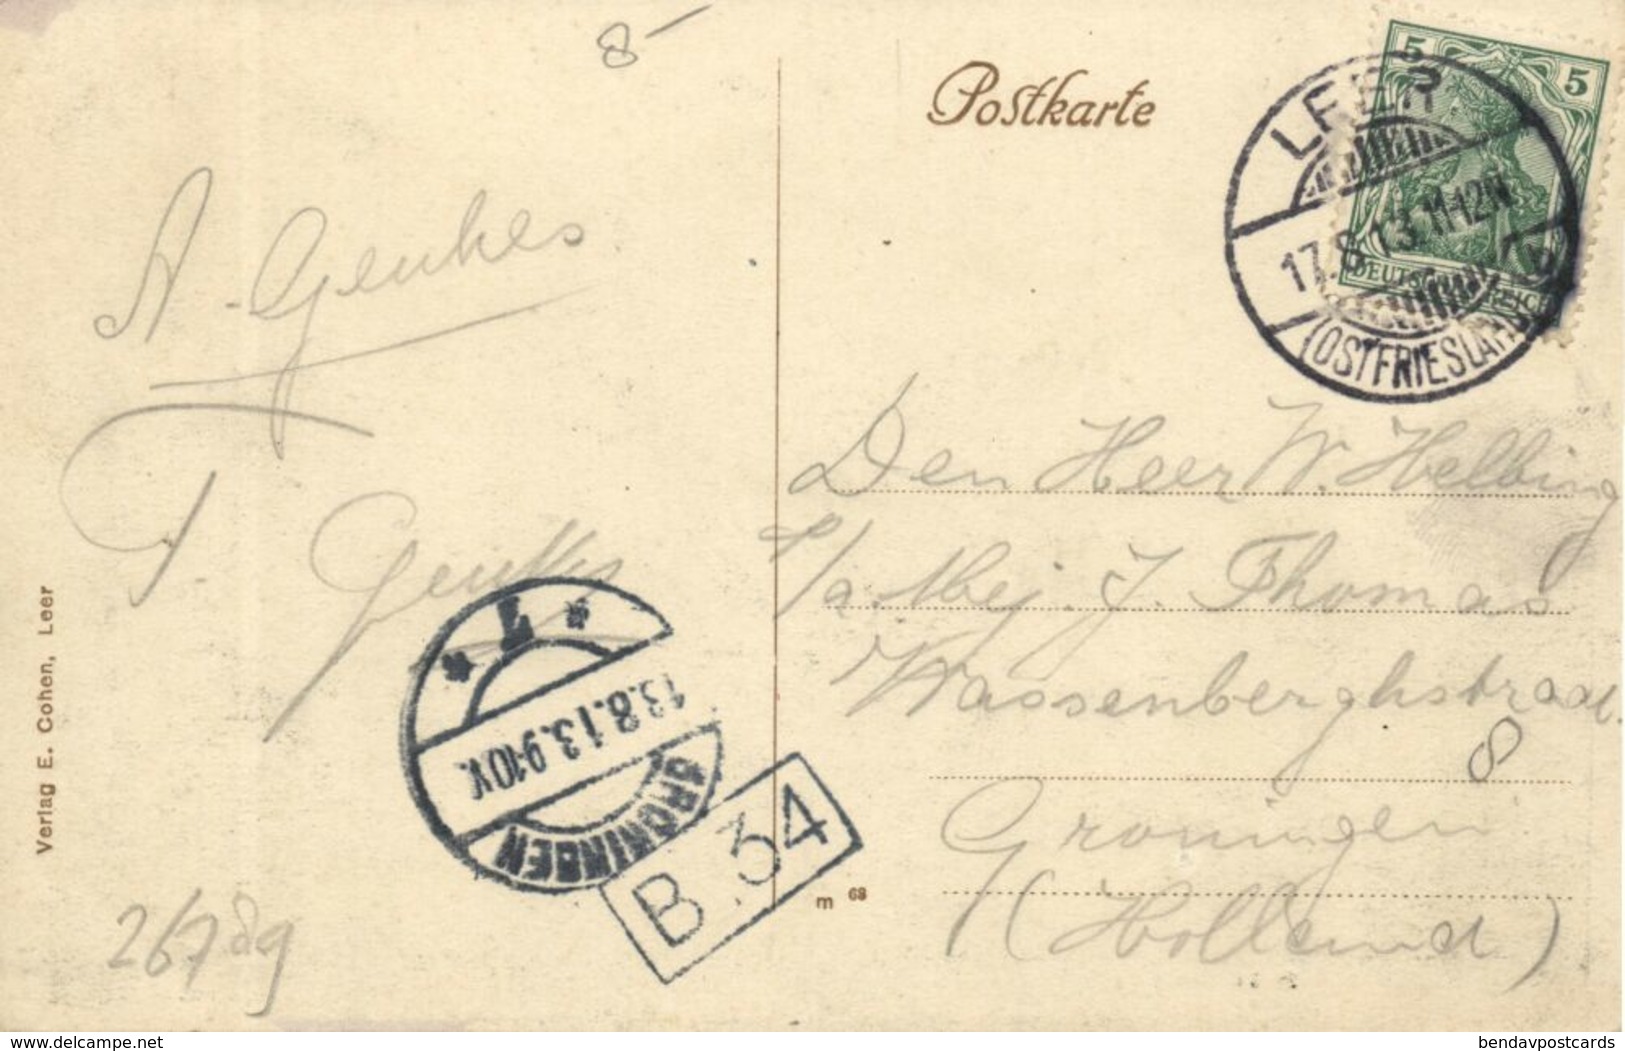 8-
Postkarte
5 5
LEER
17.8.13.11-12N
DEUTSCHES REICH
(OSTFRIESLAND)
A. Genkes
Genkes
Den Heer W. Helbing
p/a Mej. J. Thomas
Wassenberghstraat
8
Groningen
(Holland)
L
13.8.13.9-10V.
GRONINGEN
B.34
m 68
Verlag E. Cohen, Leer
26789
www.delcampe.net
bendavpostcards